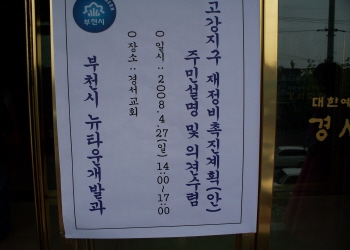 고강지구 재정비촉진계획(안)
주민설명 및 의견수렴
○ 일시 : 2008. 4. 27(일) 14:00~17:00
○ 장소 : 경서교회
부천시 뉴타운개발과
부천시
대한예
경서